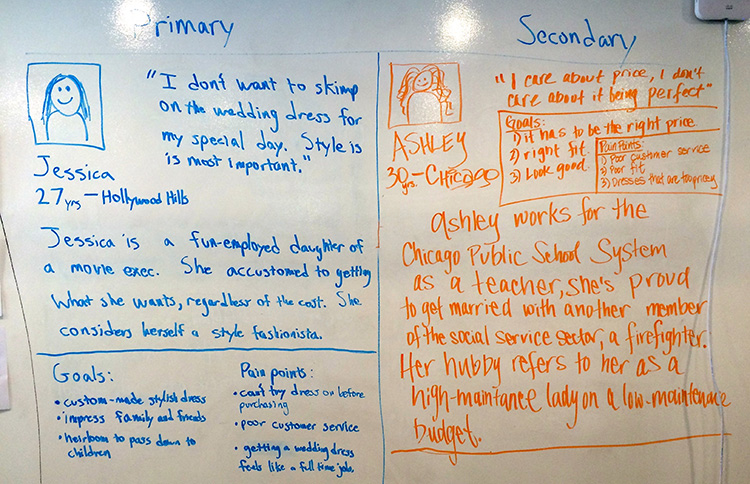 Primary
"I don't want to skimp
on the wedding dress for
my special day. Style is
is most important."
Jessica
27 yrs - Hollywood Hills
Jessica is a fun-employed daughter of
a movie exec. She accustomed to getting
what she wants, regardless of the cost. She
considers herself a style fashionista.
Goals:
• custom-made stylish dress
• impress family and friends
• heirloom to pass down to
children
Pain points:
• can't try dress on before
purchasing
• poor customer service
• getting a wedding dress
feels like a full time job.
Secondary
"I care about price, I don't
care about it being perfect"
ASHLEY
30 yrs. - Chicago
Goals:
1) it has to be the right price.
2) right fit.
3) Look good.
Pain Points:
1) Poor customer service
2) Poor fit
3) Dresses that are too pricey
Ashley works for the
Chicago Public School System
as a teacher, she's proud
to get married with another member
of the social service sector, a firefighter.
Her hubby refers to her as a
high-maintance lady on a low-maintenance
budget.